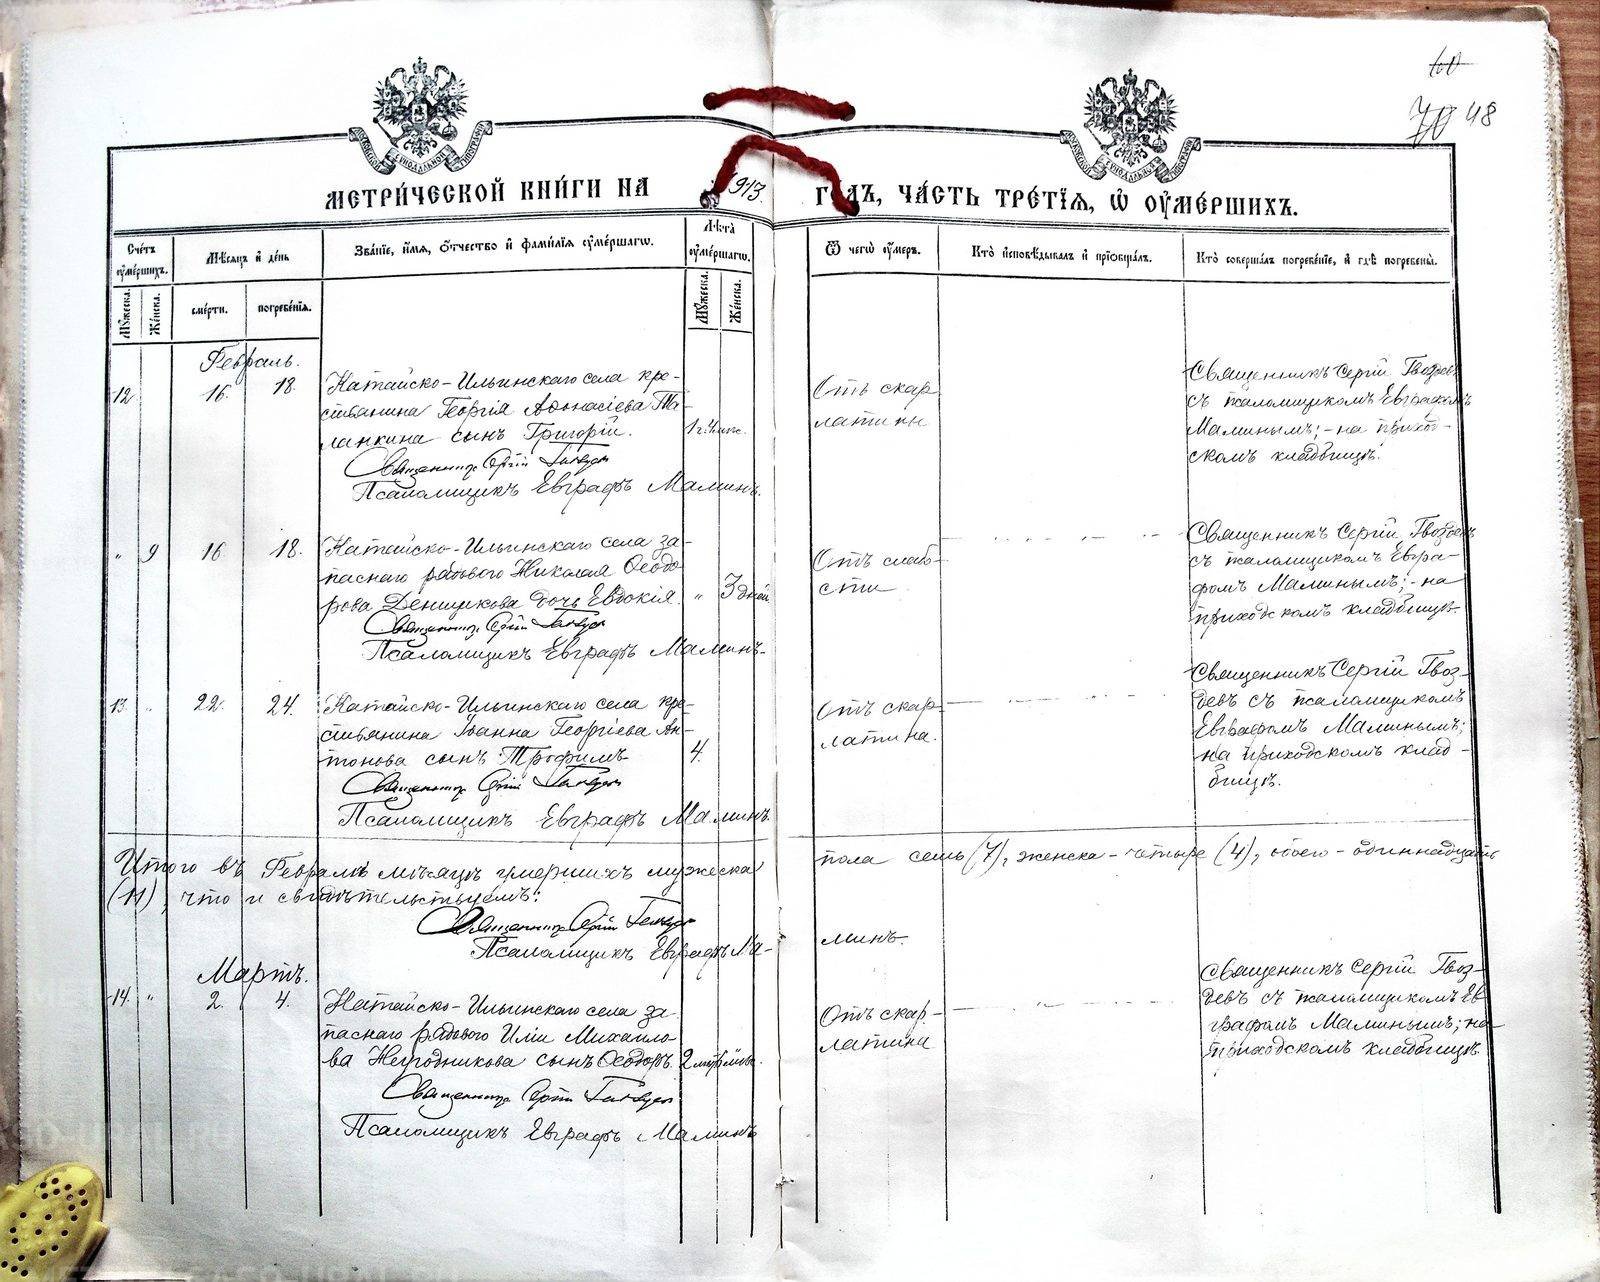 60
70 48
МОСКОВСКОЙ СѴНОДАЛЬНОЙ ТИПОГРАФІИ
МОСКОВСКОЙ СѴНОДАЛЬНОЙ ТИПОГРАФІИ
МЕТРИ́ЧЕСКОЙ КНИ́ГИ НА 1913 ГОДЪ, ЧА́СТЬ ТРЕ́ТЇѦ, Ѡ ОУМЕ́РШИХЪ.
Сче́тъ оуме́ршихъ.
Мѣсяцъ и де́нь
Зва́нїе, и́мя, о́тчество и фами́лїя оуме́ршагѡ.
Лѣта̀ оуме́ршагѡ.
Ѿ чегѡ̀ оу́меръ.
Кто̀ исповѣ́дывалъ и прїобща́лъ.
Кто̀ соверша́лъ погребе́нїе, и гдѣ̀ погребены̀.
Мꙋ́жеска.
Же́нска.
сме́рти.
погребе́нїя.
Мꙋ́жеска.
Же́нска.
Февраль.
12. 16. 18. Катайско-Ильинскаго села кре-
стьянина Георгія Аѳонасіева Та-
ланкина сынъ Григорій.
1 г.
Священникъ Сергій Гвоздевъ
Псаломщикъ Евграфъ Маминъ.
Отъ скар
латины
Священникъ Сергій Гвоздев
съ псаломщикомъ Евграфомъ
Маминымъ; - на приход-
скомъ кладбищѣ.
" 9 16 18. Катайско-Ильинскаго села за-
паснаго рядового Николая Ѳеодо
рова Денщикова дочь Евдокія. " 3 дней
Священникъ Сергій Гвоздевъ
Псаломщикъ Евграфъ Маминъ.
Отъ слабо-
сти
Священникъ Сергій Гвоздевъ
съ псаломщикомъ Евгра-
фомъ Маминымъ; - на
приходскомъ кладбищѣ.
13. " 22. 24. Катайско-Ильинскаго села кре-
стьянина Іоанна Георгіева Ан-
тонова сынъ Трофимъ 4.
Священникъ Сергій Гвоздевъ
Псаломщикъ Евграфъ Маминъ.
Отъ скар
латина.
Священникъ Сергій Гвоз-
девъ съ псаломщикомъ
Евграфомъ Маминымъ;
на приходскомъ клад-
бищѣ.
Итого въ Февралѣ мѣсяцѣ умершихъ мужеска пола семь (7), женска - четыре (4), обоего - одиннадцать
(11), что и свидѣтельствуемъ:
Священникъ Сергій Гвоздевъ
Псаломщикъ Евграфъ Ма-
минъ.
Мартъ.
14. " 2. 4. Катайско-Ильинскаго села за
паснаго рядового Иліи Михаило
ва Негодникова сынъ Ѳеодоръ. 2
Священникъ Сергій Гвоздевъ
Псаломщикъ Евграфъ Маминъ
Отъ скар-
латина
Священникъ Сергій Гвоз-
девъ съ псаломщикомъ Ев
графомъ Маминымъ; на
приходскомъ кладбищѣ.